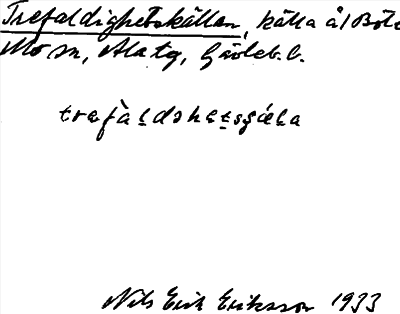 Trefaldighetskällan, källa å/ Böle
Mo sn, Ala tg, Gävleb. l.
trefàldshetsgäla
Nils Erik Eriksson 1933